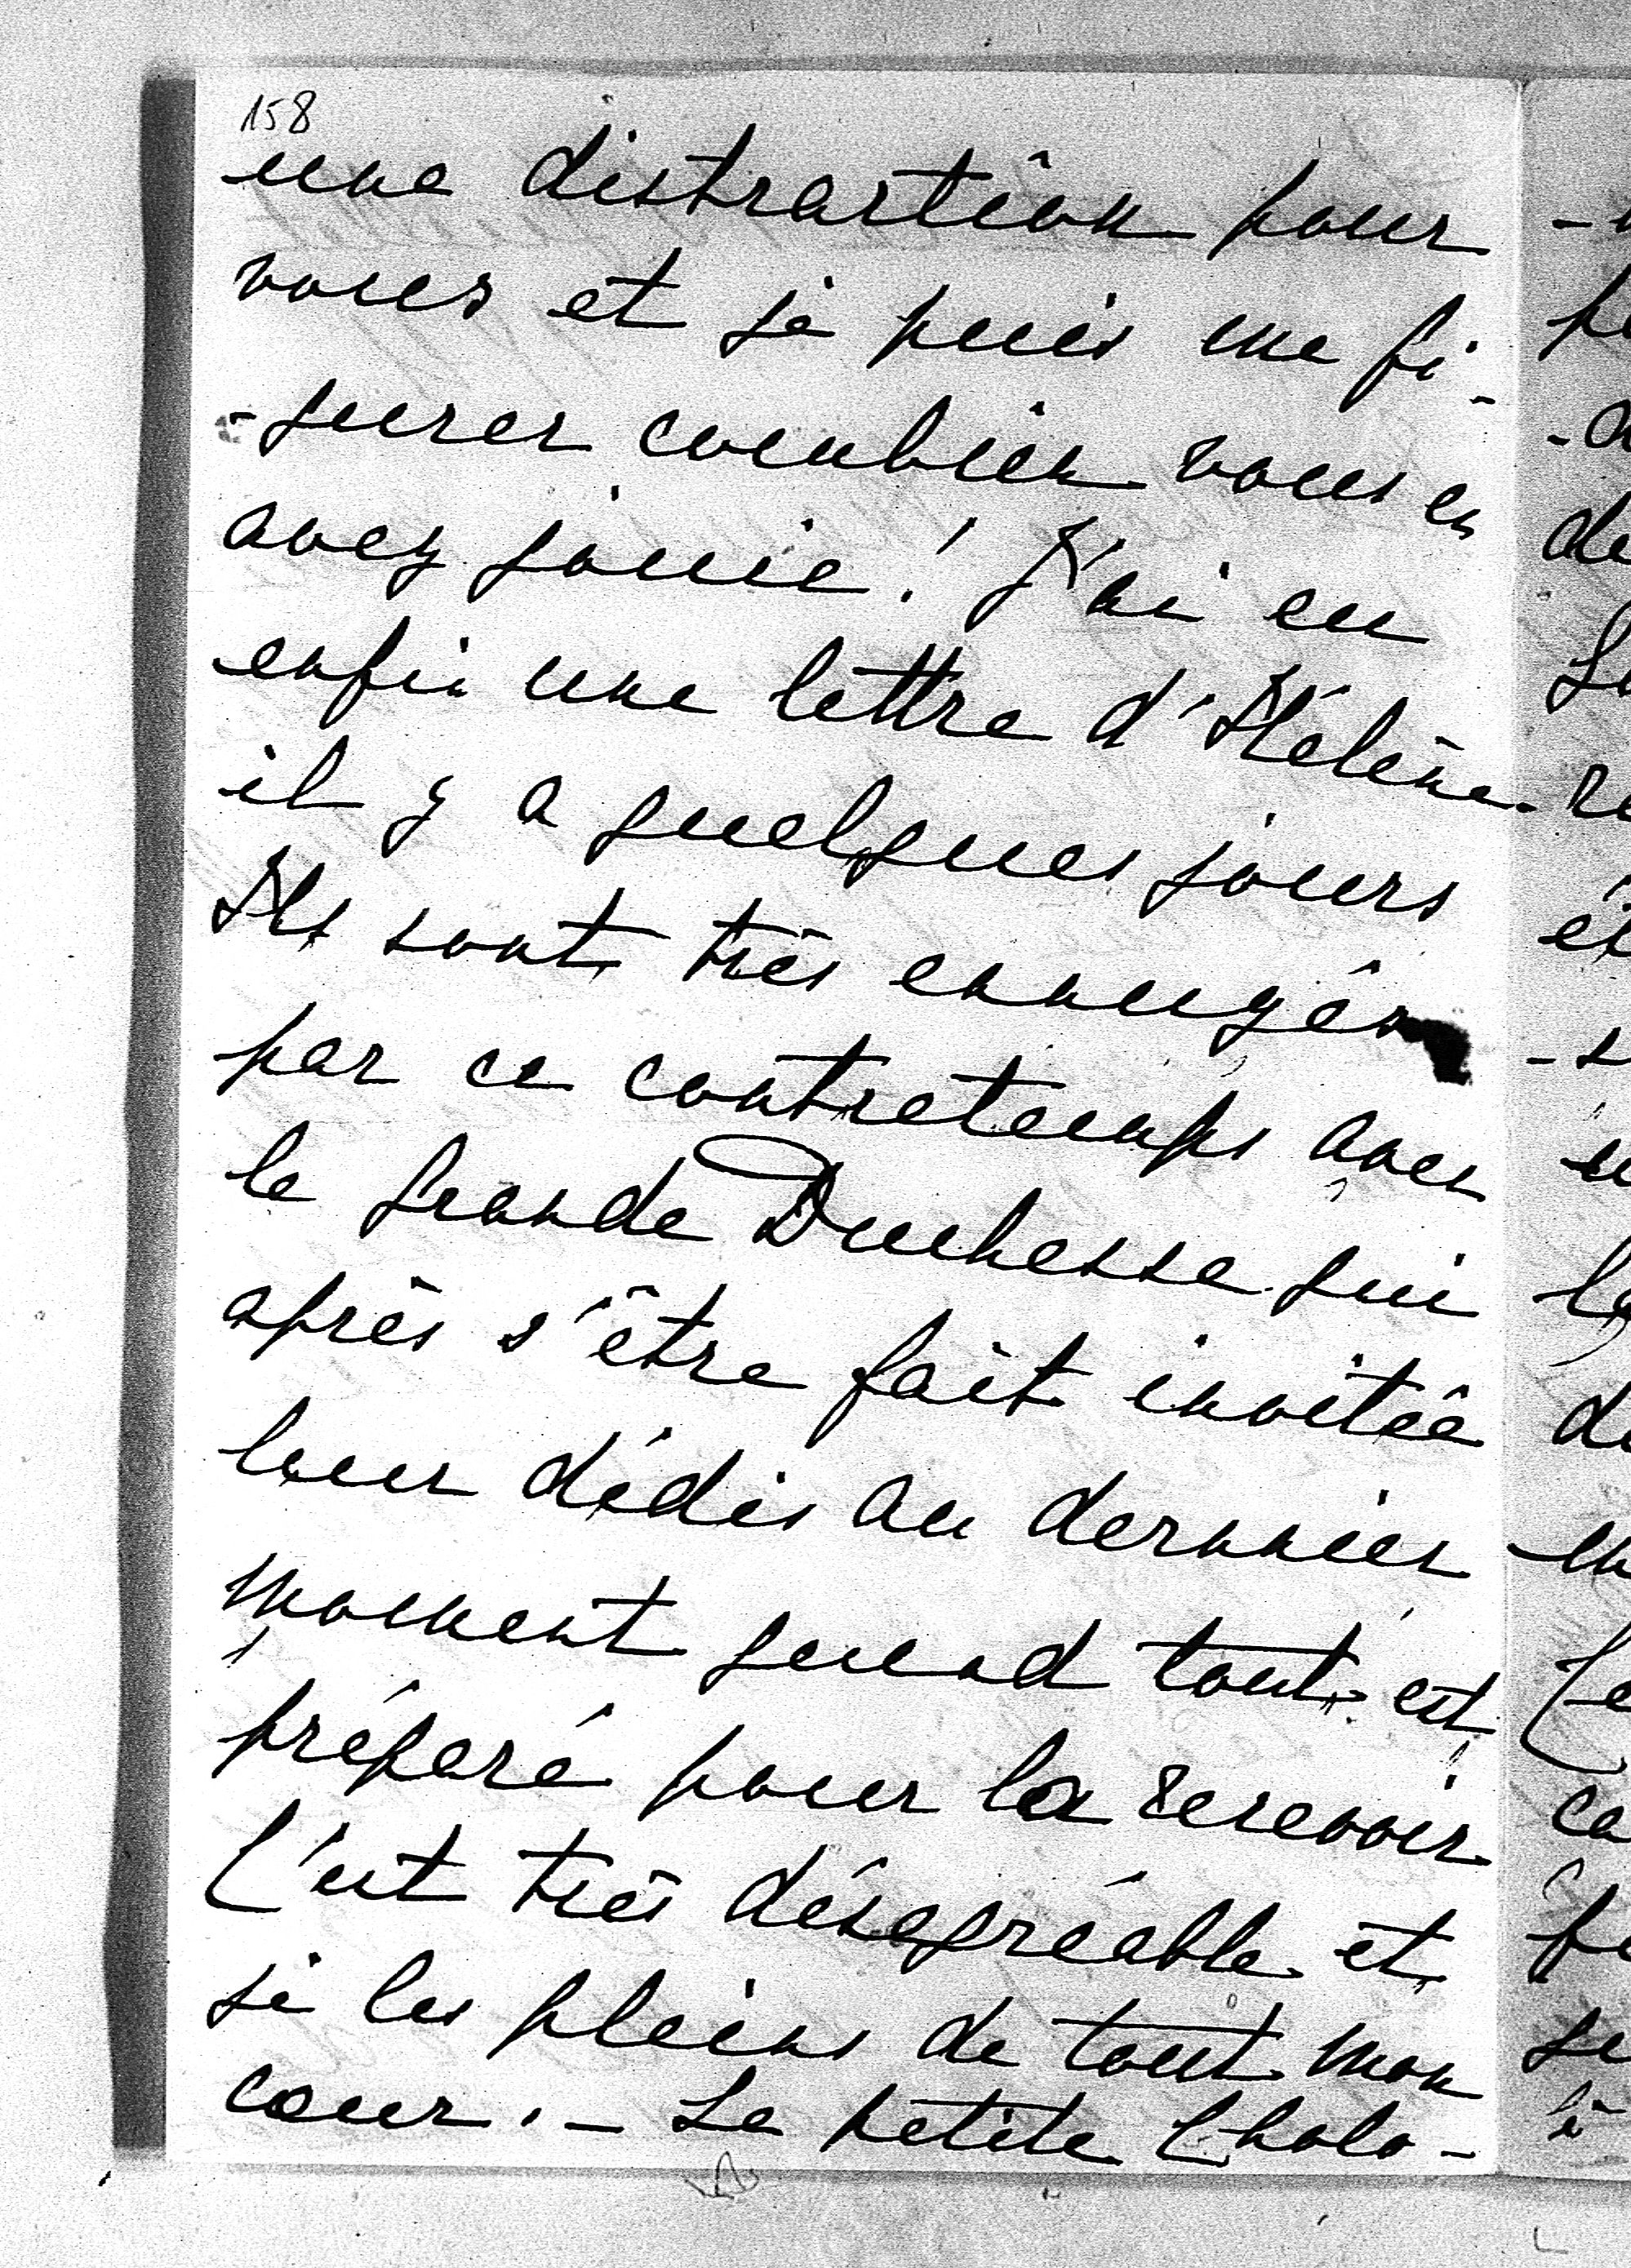 158
une distraction pour
vous et je puis me fi-
-gurer combien vous en
avez jouie! J'ai eu
enfin une lettre d'Hélène
il y a quelques jours
Ils sont très ennuyés
par ce contretemps avec
la grande Duchesse qui
après s'être fait invitée
leur dédis au dernier
moment quand tout est
préparé pour la recevoir
C'est très désagréable et
je les pleins de tout mon
cœur. - La petite Cholo-